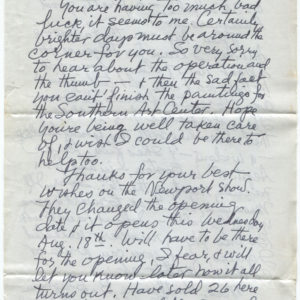 You are having too much bad
luck it seems to me. Certainly
brighter days must be around the
corner for you. So very sorry
to hear about the operation and
the thumb — & then the sad fact
you can't finish the paintings for
the Southern Art Center. Hope
you're being well taken care
of, & wish I could be there to
help too.
Thanks for your best
wishes on the Newport show.
They changed the opening
date & it opens this Wednesday
Aug. 18th. Will have to be there
for the opening, I fear, & will
let you know later how it all
turns out. Have sold 26 here